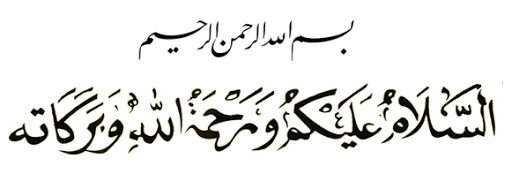 بسم الله الرحمن الرحيم
السَّلَامُ عَلَيْكُمْ وَرَحْمَةُ اللهِ وَبَرَكَاته